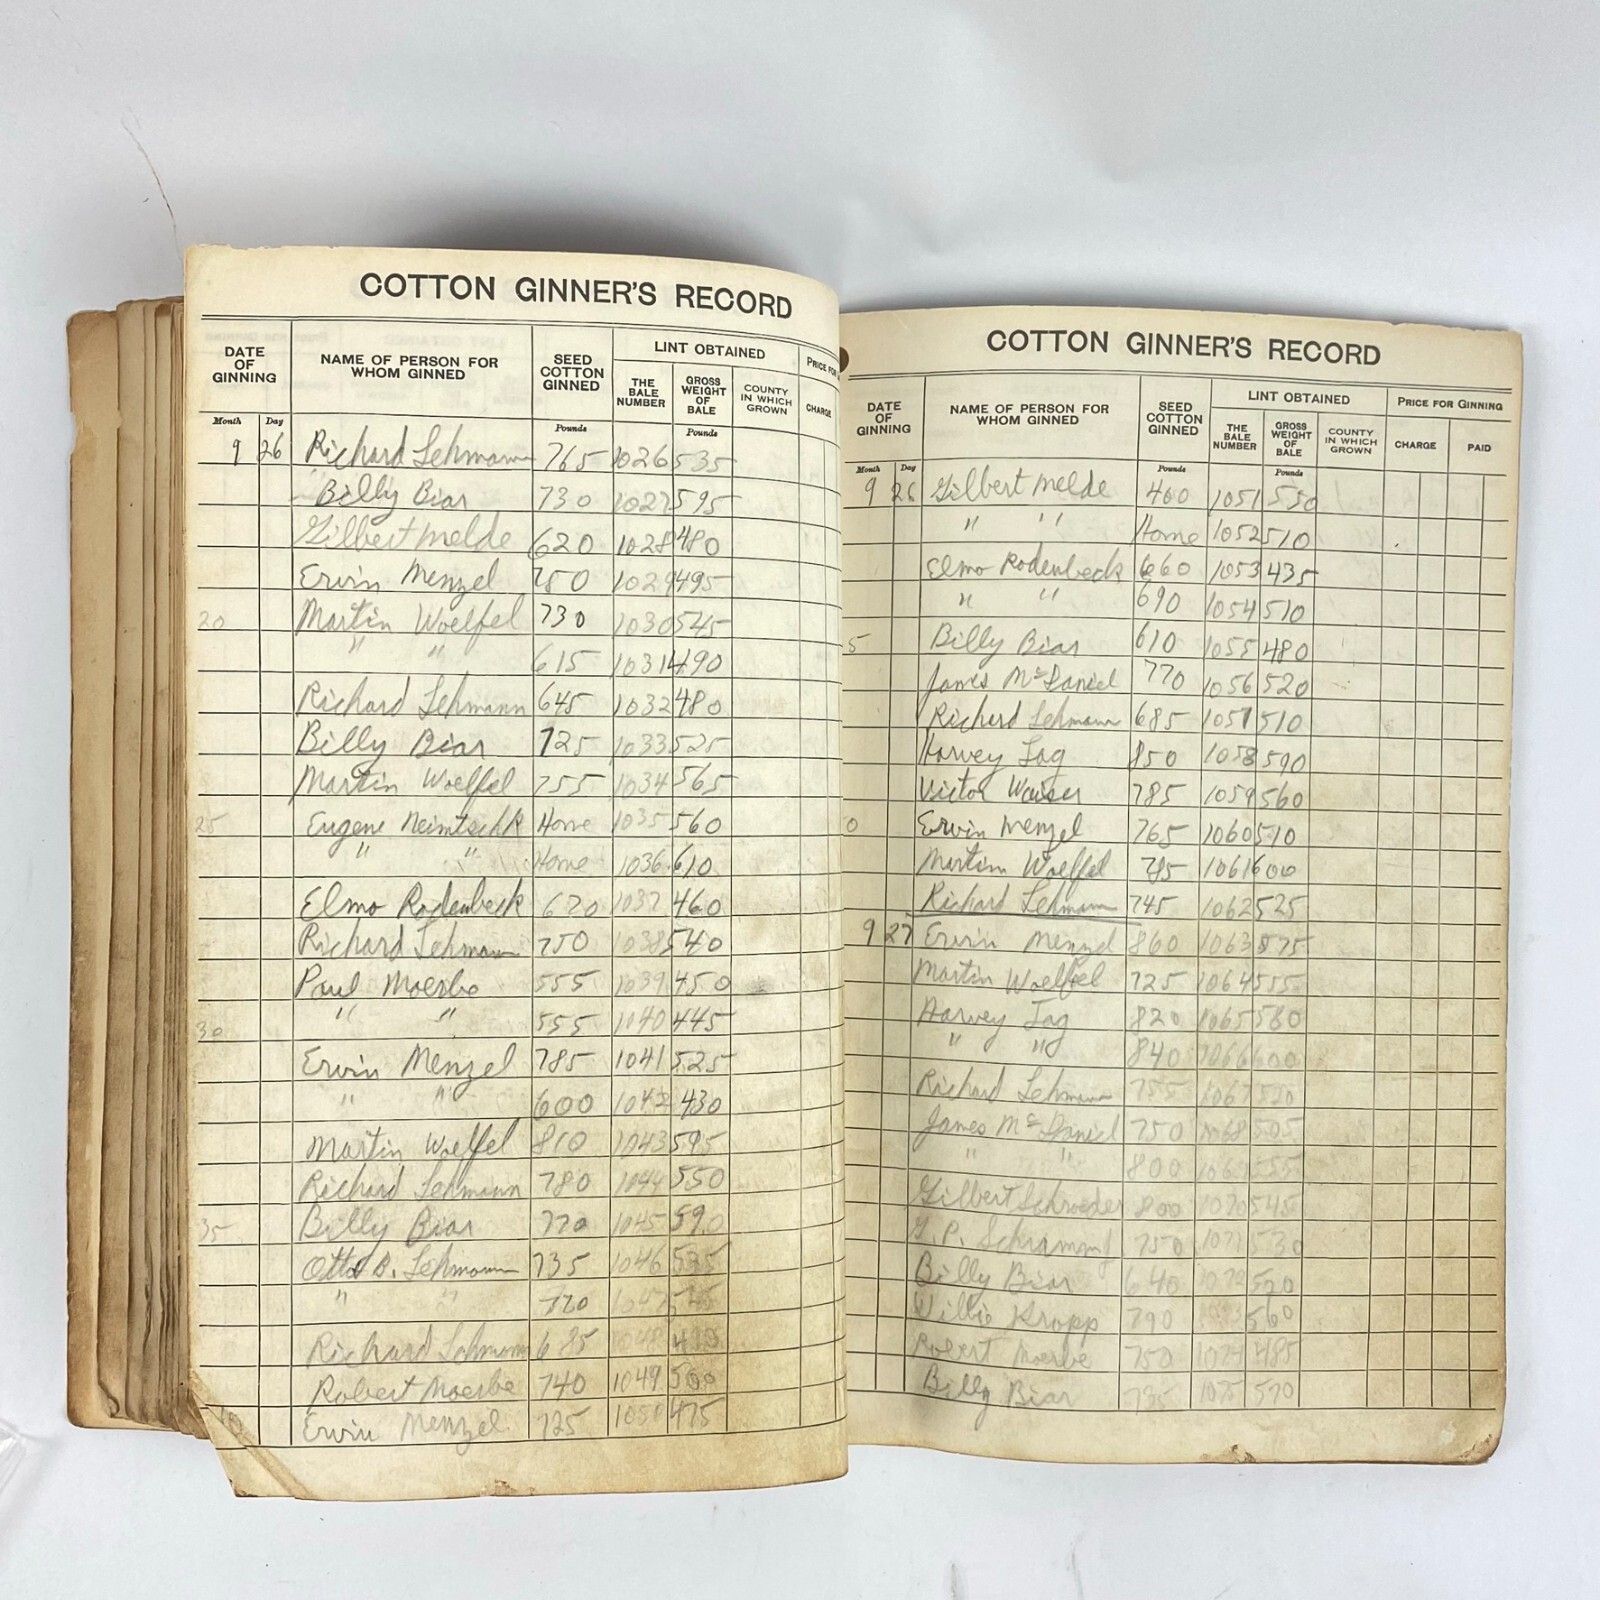 COTTON GINNER'S RECORD
DATE OF GINNING NAME OF PERSON FOR WHOM GINNED SEED COTTON GINNED LINT OBTAINED PRICE FOR
THE BALE NUMBER GROSS WEIGHT OF BALE COUNTY IN WHICH GROWN CHARGE
Month Day Pounds Pounds
9 26 Richard Lehmann 765 1026 535
Billy Biar 730 1027 595
Gilbert Melde 620 1028 480
Ervin Menzel 780 1029 495
20 Martin Woelfel 730 1030 545
" " 615 1031 490
Richard Lehmann 645 1032 480
Billy Biar 725 1033 525
Martin Woelfel 755 1034 565
25 Eugene Neimtschk Home 1035 560
" " Home 1036 610
Elmo Rodenbeck 670 1037 460
Richard Lehmann 750 1038 540
Paul Moerbe 555 1039 450
30 " " 555 1040 445
Ervin Menzel 785 1041 525
" " 600 1042 430
Martin Woelfel 810 1043 595
Richard Lehmann 780 1044 550
35 Billy Biar 770 1045 590
Otto B. Lehmann 735 1046 535
" " 770 1047
Richard Lehmann 685 1048
Robert Moerbe 740 1049 500
Ervin Menzel 725 1050 475
COTTON GINNER'S RECORD
DATE OF GINNING NAME OF PERSON FOR WHOM GINNED SEED COTTON GINNED LINT OBTAINED PRICE FOR GINNING
THE BALE NUMBER GROSS WEIGHT OF BALE COUNTY IN WHICH GROWN CHARGE PAID
Month Day Pounds Pounds
9 26 Gilbert Melde 460 1051 550
" " Home 1052 510
Elmo Rodenbeck 660 1053 435
" " 690 1054 510
5 Billy Biar 610 1055 480
James McDaniel 770 1056 520
Richard Lehmann 685 1057 510
Harvey Jag 850 1058 590
Victor Waiser 785 1059 560
0 Ervin Menzel 765 1060 510
Martin Woelfel 785 1061 600
Richard Lehmann 745 1062 525
9 27 Ervin Menzel 860 1063 575
Martin Woelfel 725 1064 555
Harvey Jag 820 1065 560
" " 840 1066 600
Richard Lehmann 755 1067
James McDaniel 750 1068 505
" " 800 1069 555
Gilbert Schroeder 800 1070 545
G. P. Schramm 750 1071 530
Billy Biar 640 1072 520
Willie Kropp 790 560
Robert Moerbe 750 1074 485
Billy Biar 735 1075 570